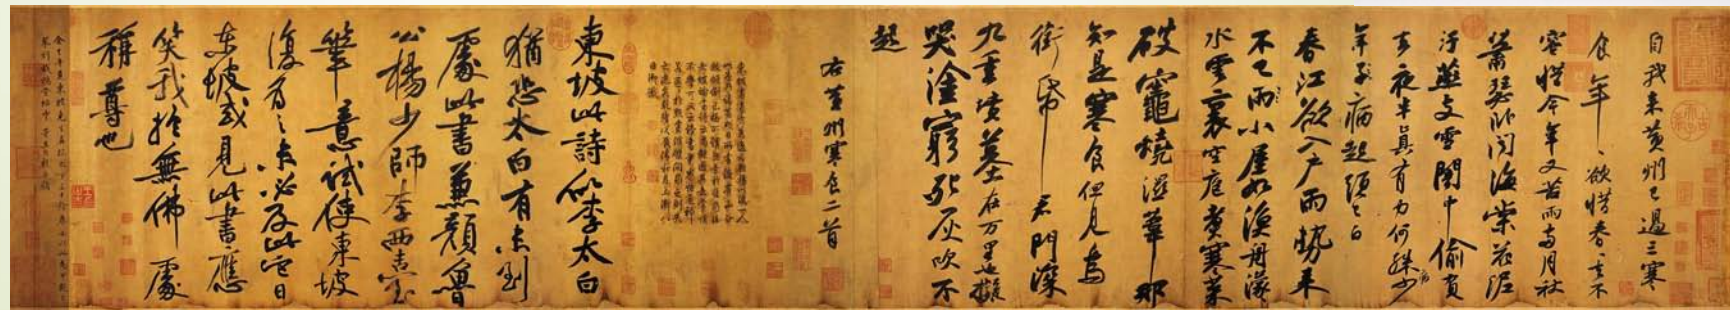 自我来黄州已過三寒
食年〻欲惜春〻去不
容惜今年又苦雨兩月秋
蕭瑟卧聞海棠花泥
汙燕支雪闇中偷負
去夜半真有力何殊病少
年子病起頭已白
春江欲入户雨勢来
不已雨小屋如漁舟濛〻
水雲裏空庖煑寒菜
破竈燒濕葦那
知是寒食但見烏
銜帋君門深
九重墳墓在万里也擬
哭塗窮死灰吹不
起
右黄州寒食二首
東坡此詩似李太白
猶恐太白有未到
處此書兼顔魯
公楊少師李西臺
筆意試使東坡
復為之未必及此它日
東坡或見此書應
笑我於無佛處
稱尊也